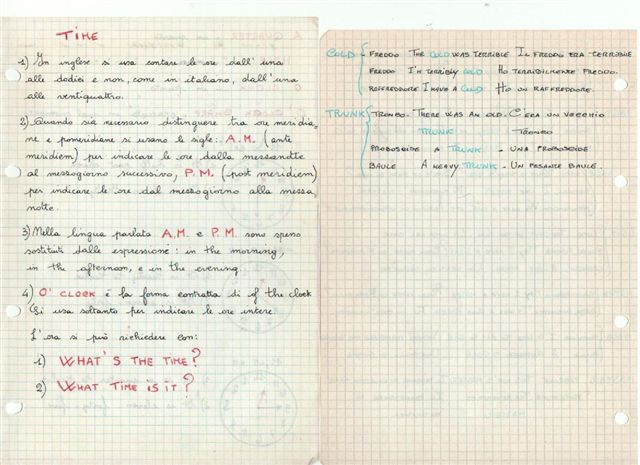 TIME
1) In inglese si usa contare le ore dall' una
alle dodici e non, come in italiano, dall' una
alle ventiquattro.
2) Quando sia necessario distinguere tra ore meridia-
ne e pomeridiane si usano le sigle: A.M. (ante
meridiem) per indicare le ore dalla mezzanotte
al mezzogiorno successivo, P.M. (post meridiem)
per indicare le ore dal mezzogiorno alla mezza
notte.
3) Nella lingua parlata A.M. e P.M. sono spesso
sostituiti dalle espressione: in the morning,
in the afternoon, e in the evening.
4) O' CLOCK è la forma contratta di of the clock
(si usa soltanto per indicare le ore intere.
L'ora si può richiedere con:
1) WHAT'S THE TIME?
2) WHAT TIME IS IT?
COLD FREDDO THE COLD WAS TERRIBLE IL FREDDO ERA TERRIBILE
FREDDO I'M TERRIBLY COLD. HO TERRIBILMENTE FREDDO.
RAFFREDDORE I HAVE A COLD HO UN RAFFREDDORE.
TRUNK TRONCO. THERE WAS AN OLD. C'ERA UN VECCHIO
TRUNK TRONCO
PROBOSCIDE A TRUNK - UNA PROBOSCIDE
BAULE A HEAVY TRUNK - UN PESANTE BAULE.